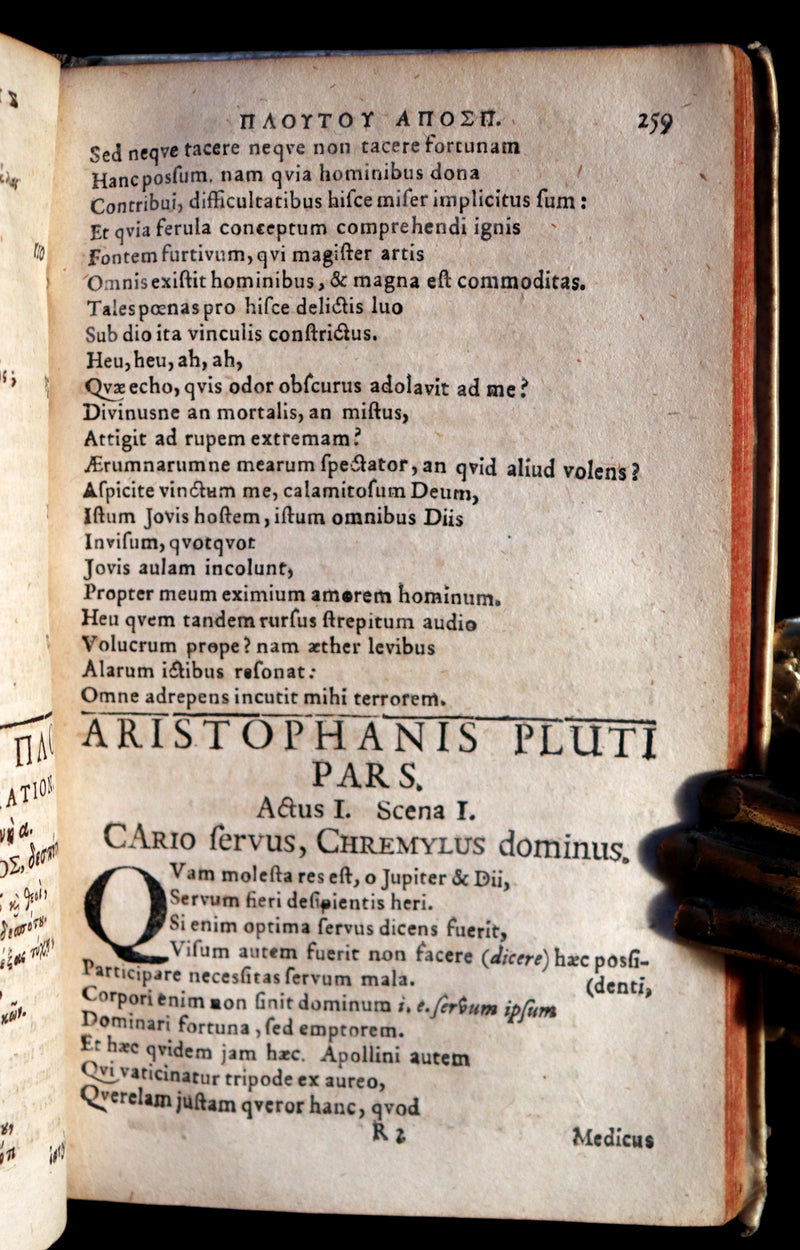 ΠΛΟΥΤΟΥ ΑΠΟΣΠ. 259
Sed neqve tacere neqve non tacere fortunam
Hanc posſum. nam qvia hominibus dona
Contribui, difficultatibus hiſce miſer implicitus ſum:
Et qvia ferula conceptum comprehendi ignis
Fontem furtivum, qvi magiſter artis
Omnis exiſtit hominibus, & magna eſt commoditas.
Tales pœnas pro hiſce delictis luo
Sub dio ita vinculis conſtrictus.
Heu, heu, ah, ah,
Qvæ echo, qvis odor obſcurus adolavit ad me?
Divinusne an mortalis, an miſtus,
Attigit ad rupem extremam?
Ærumnarumne mearum ſpectator, an qvid aliud volens?
Aſpicite vinctum me, calamitoſum Deum,
Iſtum Jovis hoſtem, iſtum omnibus Diis
Inviſum, qvotqvot
Jovis aulam incolunt,
Propter meum eximium amorem hominum.
Heu qvem tandem rurſus ſtrepitum audio
Volucrum prope? nam æther levibus
Alarum ictibus reſonat:
Omne adrepens incutit mihi terrorem.
ARISTOPHANIS PLUTI
PARS.
Actus I. Scena I.
CARIO ſervus, CHREMYLUS dominus.
QVam moleſta res eſt, o Jupiter & Dii,
Servum fieri deſipientis heri.
Si enim optima ſervus dicens fuerit,
Viſum autem fuerit non facere (dicere) hæc posſi-
(denti,
Participare necesſitas ſervum mala.
Corpori enim non ſinit dominum i. e. ſervum ipſum
Dominari fortuna, ſed emptorem.
Et hæc qvidem jam hæc. Apollini autem
Qvi vaticinatur tripode ex aureo,
Qverelam juſtam qveror hanc, qvod
R 2 Medicus